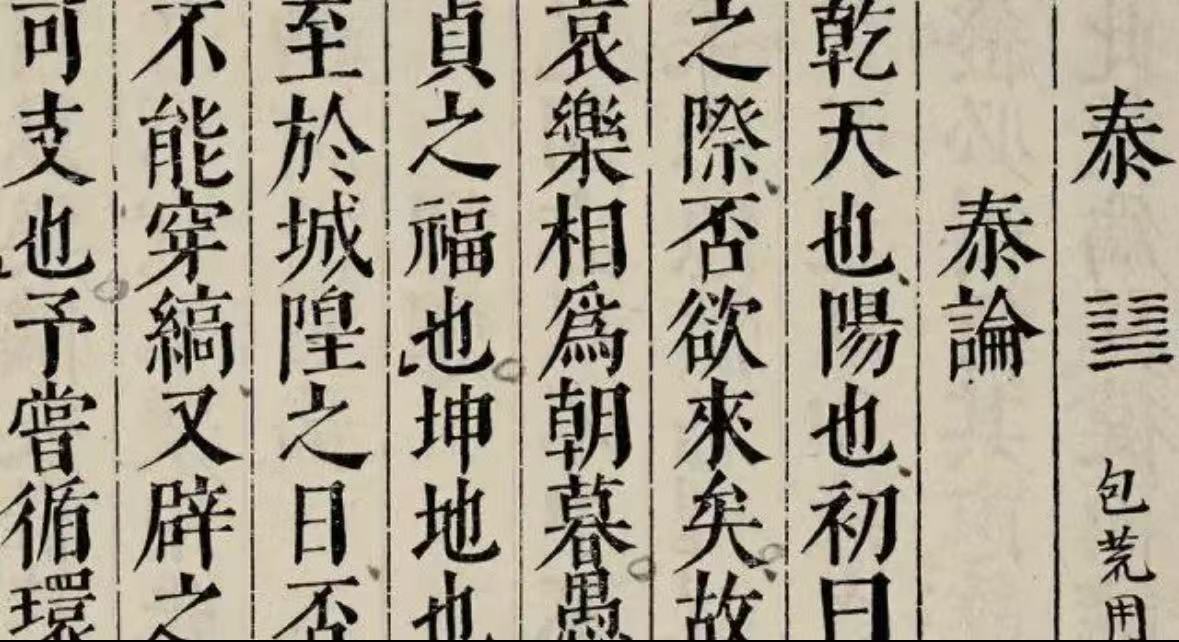 泰 ䷊ 包荒用
泰論
乾天也陽也初曰
之際否欲來矣故
哀樂相爲朝暮愚
貞之福也坤地也
至於城隍之日否
不能穿縞又辟之
可支也予嘗循環